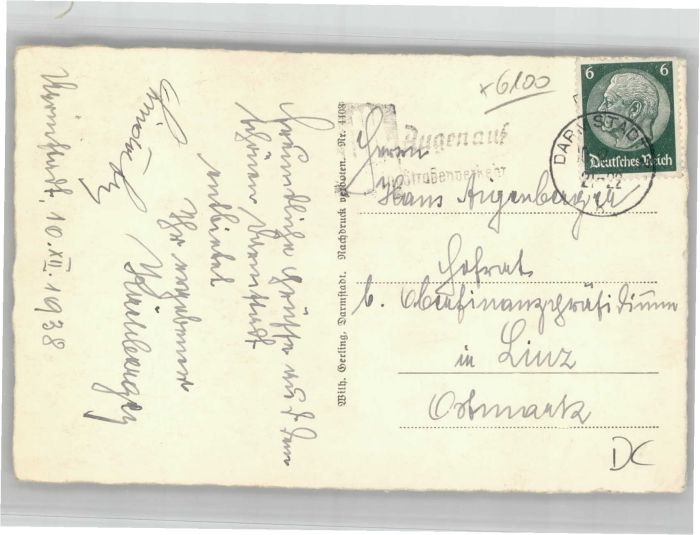 Darmstadt, 10. XII. 1938
Freundliche Grüße aus dem
schönen Darmstadt
entbietet
Ihr ergebener
Wilh. Gerling, Darmstadt. Nachdruck verboten. Nr. 4408
x 6100
6 6
Deutsches Reich
DARMSTADT
21-22
Augen auf
Straßenverkehr
Herrn
Hans Aigenberger
Hofrat
b. Oberfinanzpräsidium
in Linz
Ostmark
DC